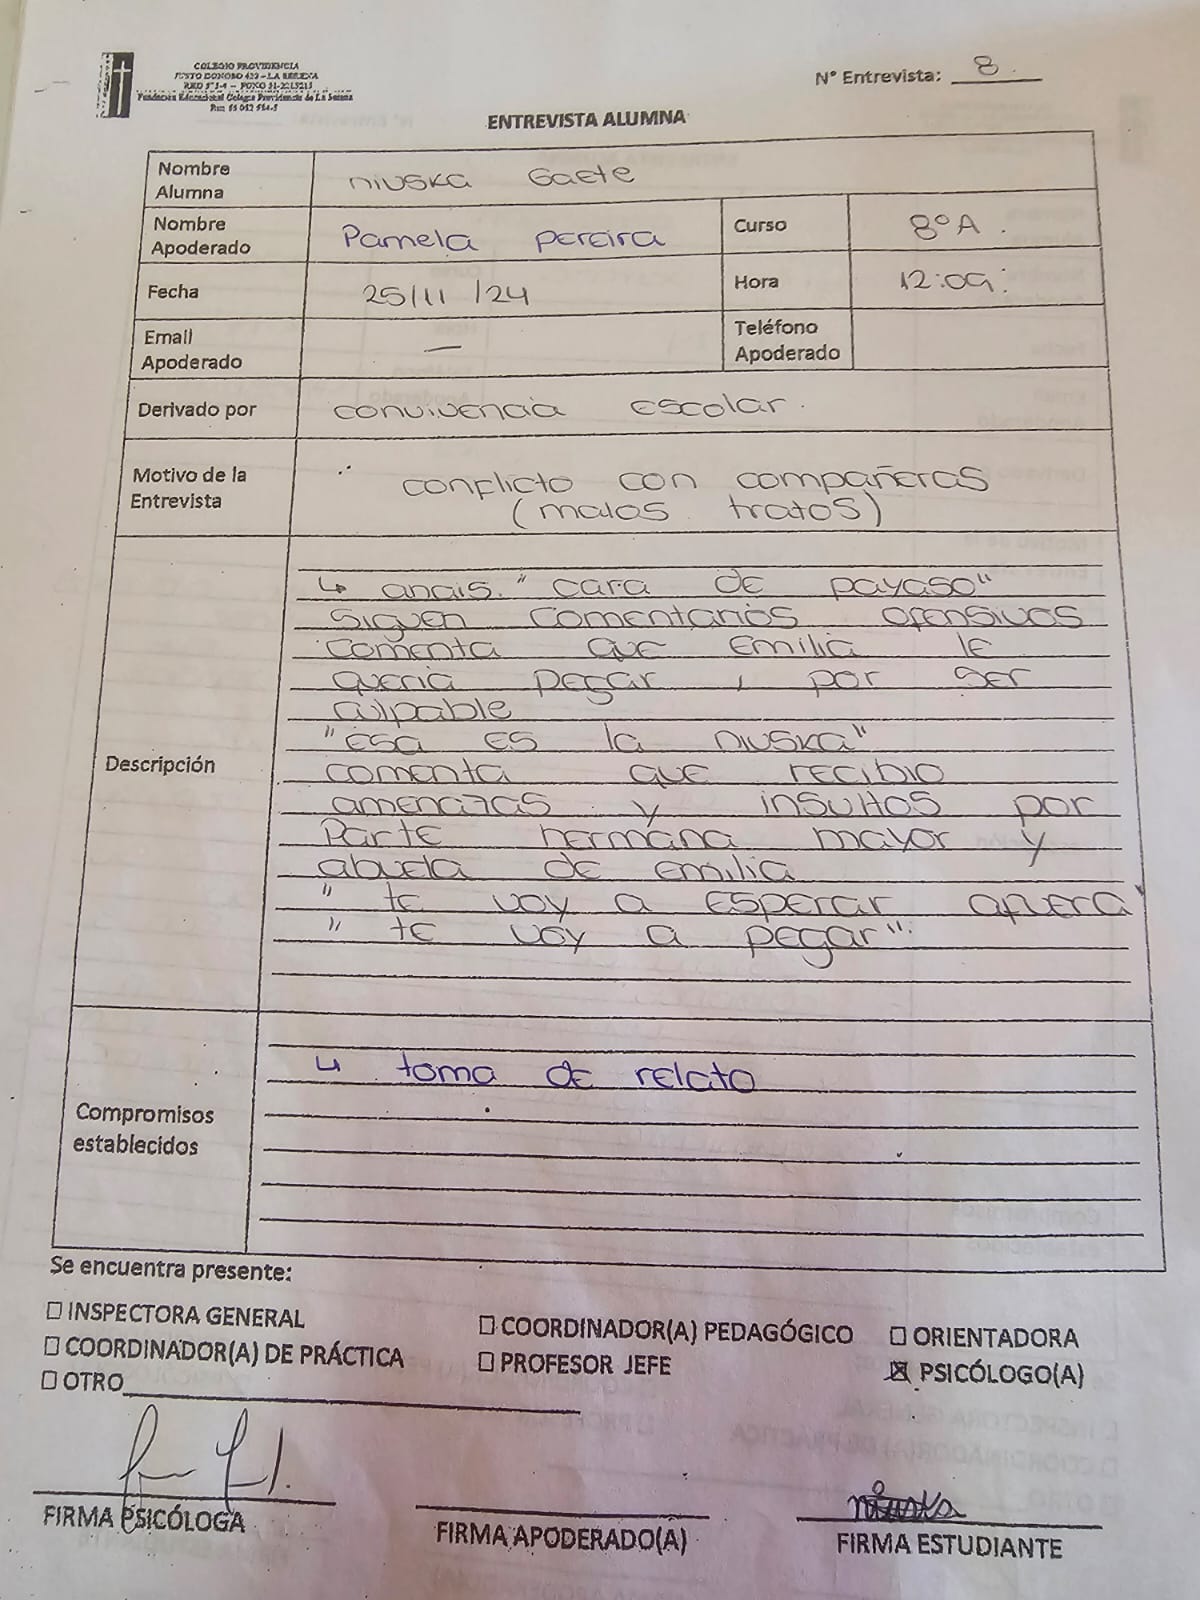 COLEGIO PROVIDENCIA
JUSTO DONOSO 420 - LA SERENA
Fundación Educacional Colegio Providencia de La Serena
N° Entrevista: 8
ENTREVISTA ALUMNA
Nombre Alumna niuska Gaete
Nombre Apoderado Pamela pereira Curso 8°A.
Fecha 25/11/24 Hora 12:09:
Email Apoderado — Teléfono Apoderado
Derivado por convivencia escolar.
Motivo de la Entrevista conflicto con compañeras
(malos tratos)
Descripción
↳ anais. "cara de payaso"
siguen comentarios ofensivos
comenta que emilia le
queria pegar, por ser
culpable
"esa es la niuska"
comenta que recibio
amenazas y insultos por
parte hermana mayor y
abuela de emilia
" te voy a esperar afuera"
" te voy a pegar".
Compromisos establecidos
↳ toma de relato
Se encuentra presente:
☐ INSPECTORA GENERAL ☐ COORDINADOR(A) PEDAGÓGICO ☐ ORIENTADORA
☐ COORDINADOR(A) DE PRÁCTICA ☐ PROFESOR JEFE ☒ PSICÓLOGO(A)
☐ OTRO
niuska
FIRMA PSICÓLOGA FIRMA APODERADO(A) FIRMA ESTUDIANTE